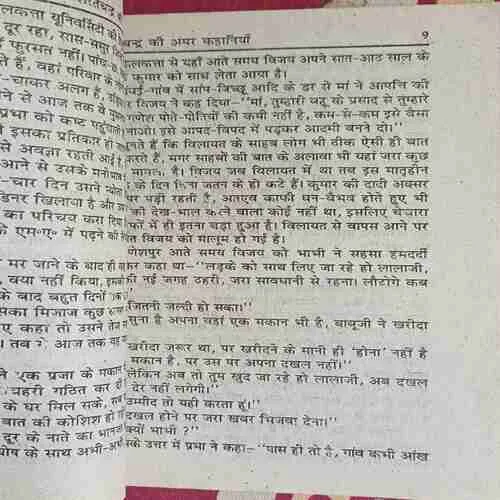 चन्द्र की अमर कहानियाँ
९
कलकत्ता से यहाँ आते समय विजय अपने सात-आठ साल के
कुमार को साथ लेता आया है।
गंवई-गांव में सांप-बिच्छू आदि के डर से मां ने आपत्ति की
विजय ने कह दिया—“मां, तुम्हारी बहू के प्रसाद से तुम्हारे
पोते-पोतियों की कमी नहीं है, कम-से-कम इसे वैसा
बनाओ। इसे आपद-विपद में पड़कर आदमी बनने दो।”
सुनते हैं कि विलायत के साहब लोग भी ठीक ऐसी ही बात
करते हैं, मगर साहबों की बात के अलावा भी यहां जरा कुछ
मामला है। विजय जब विलायत में था तब इस मातृहीन
के दिन बिना जतन के ही कटे हैं। कुमार की दादी अक्सर
पर पड़ी रहती हैं, अतएव काफी धन-वैभव होते हुए भी
की देख-भाल करने वाला कोई नहीं था, इसलिए बेचारा
में ही इतना बड़ा हुआ है। विलायत से वापस आने पर
विजय को मालूम हो गई है।
आते समय विजय को भाभी ने सहसा हमदर्दी
कर कहा था—“लड़के को साथ लिए जा रहे हो लालाजी,
नई जगह ठहरी, जरा सावधानी से रहना। लौटोगे कब
जितनी जल्दी हो सका।”
सुना है अपना वहां एक मकान भी है, बाबूजी ने खरीदा
खरीदा जरूर था, पर खरीदने के मानी ही ‘होना’ नहीं है
मकान है, पर उस पर अपना दखल नहीं।”
लेकिन अब तो तुम खुद जा रहे हो लालाजी, अब दखल
देर नहीं लगेगी।”
उम्मीद तो यही करता हूं।”
दखल होने पर जरा खबर भिजवा देना।”
क्यों भाभी ?”
उत्तर में प्रभा ने कहा—“पास ही तो है, गांव कभी आंख
कलकत्ता यूनिवर्सिटी की
दूर रहा, सास-ससुर
फुरसत नहीं।
हैं, वहां परिवार के
चाकर अलग हैं,
से आज तक वे
प्रभा को कष्ट
इसका प्रतिकार ही
से अवज्ञा रहती आई है,
आने से उसके
चार दिन उसने
डिनर खिलाया है और
का परिचय करा दिया
के एम०ए० में पढ़ने की
मर जाने के बाद ही
क्या नहीं किया,
के बाद बहुत दिनों
मिजाज कुछ
कहा तो उसने
तब से आज तक वह
ने एक प्रजा के मकान
कचहरी गठित कर दी
के घर मिल सके,
बात की कोशिश
दूर के नाते का
के साथ अभी-अभी